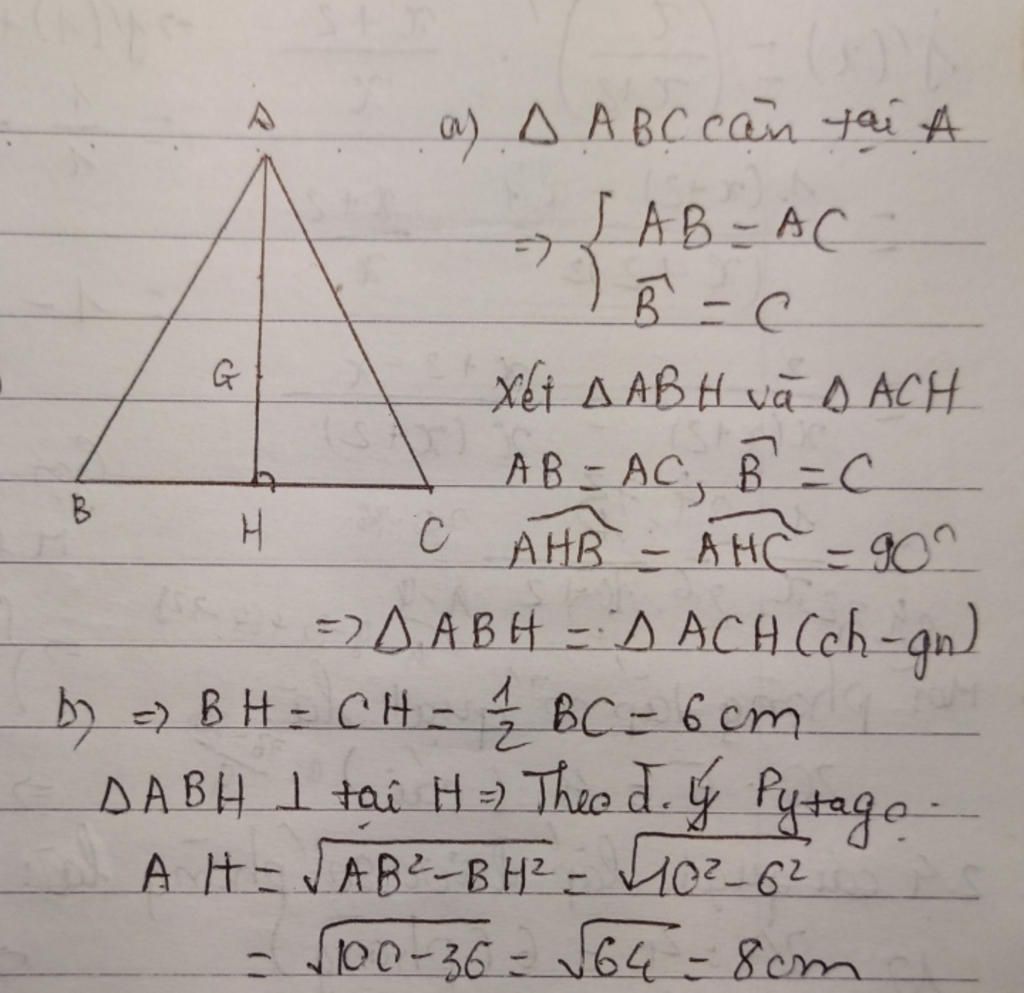 A
a) Δ ABC cân tại A
=> { AB = AC
B̂ = C
G
Xét Δ ABH và Δ ACH
AB = AC, B̂ = C
B H C
AHB̂ = AHĈ = 90°
=> Δ ABH = Δ ACH (ch-gn)
b) => BH = CH = 1/2 BC = 6 cm
Δ ABH ⊥ tại H => Theo đ. lý Pytago.
AH = √AB²-BH² = √10²-6²
= √100-36 = √64 = 8cm